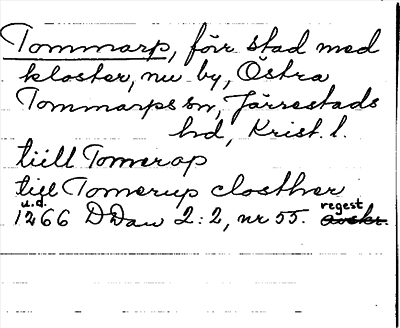 Tommarp, förr stad med
kloster, nu by, Östra
Tommarps sn, Järrestads
hd, Krist. l.
tiill Tomerop
tigl Tomerup closther
u.d. regest
1266 DDan 2:2, nr 55. avskr.